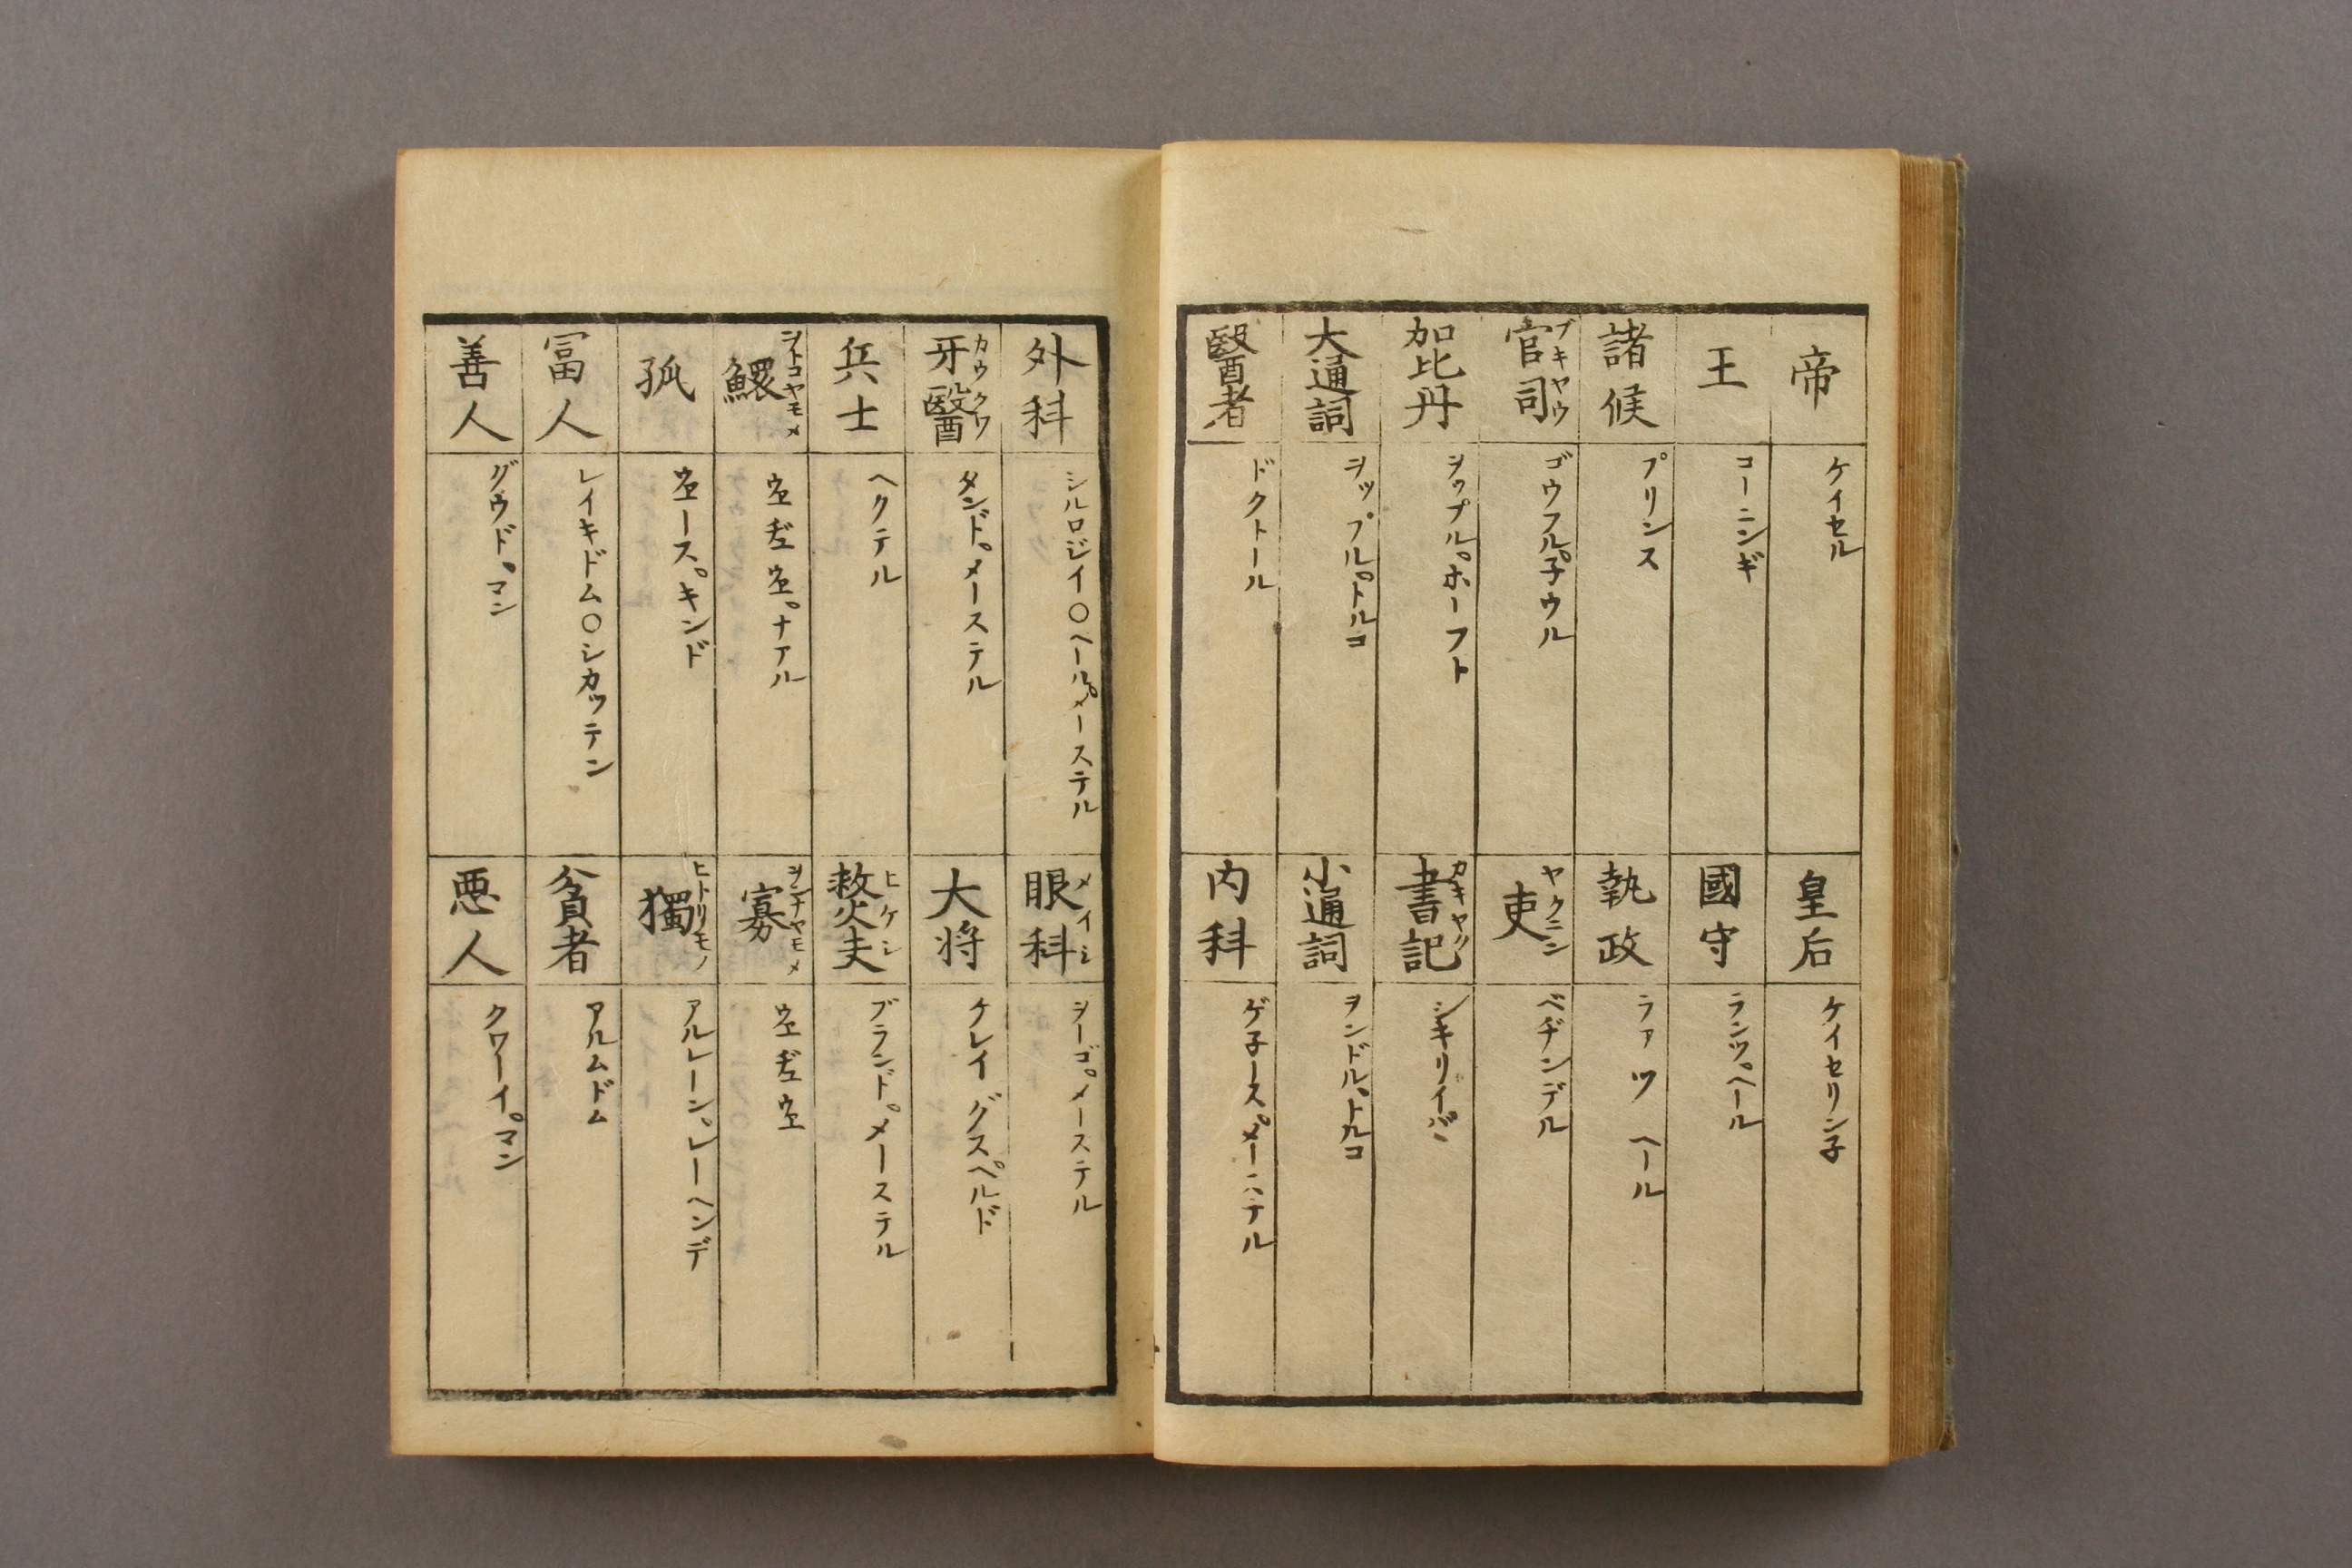 帝
ケイセル
皇后
ケイセリン子
王
コーニンギ
國守
ランツ。ヘール
諸候
プリンス
執政
ラァツヘール
官司
ブキヤウ
ゴウフル。子ウル
吏
ヤクニン
ベヂンデル
加比丹
ヲップル。ホーフト
書記
カキヤク
シキリイバ
大通詞
ヲップル。トルコ
小通詞
ヲンドル。トルコ
醫者
ドクトール
内科
ゲ子ース。メーステル
外科
シルロジイ〇ヘール。メーステル
眼科
メイシ
ヲーゴ。メーステル
牙醫
カウクワ
タンド。メーステル
大将
ケレイグスペルド
兵士
ヘクテル
救火夫
ヒケシ
ブランド。メーステル
鰥
ヲトコヤモメ
孤
寡
ヲンナヤモメ
獨
ヒトリモノ
アルレーン。レーヘンデ
冨人
レイキドム〇シカッテン
貧者
アルムドム
善人
グウド。マン
悪人
クワーイ。マン